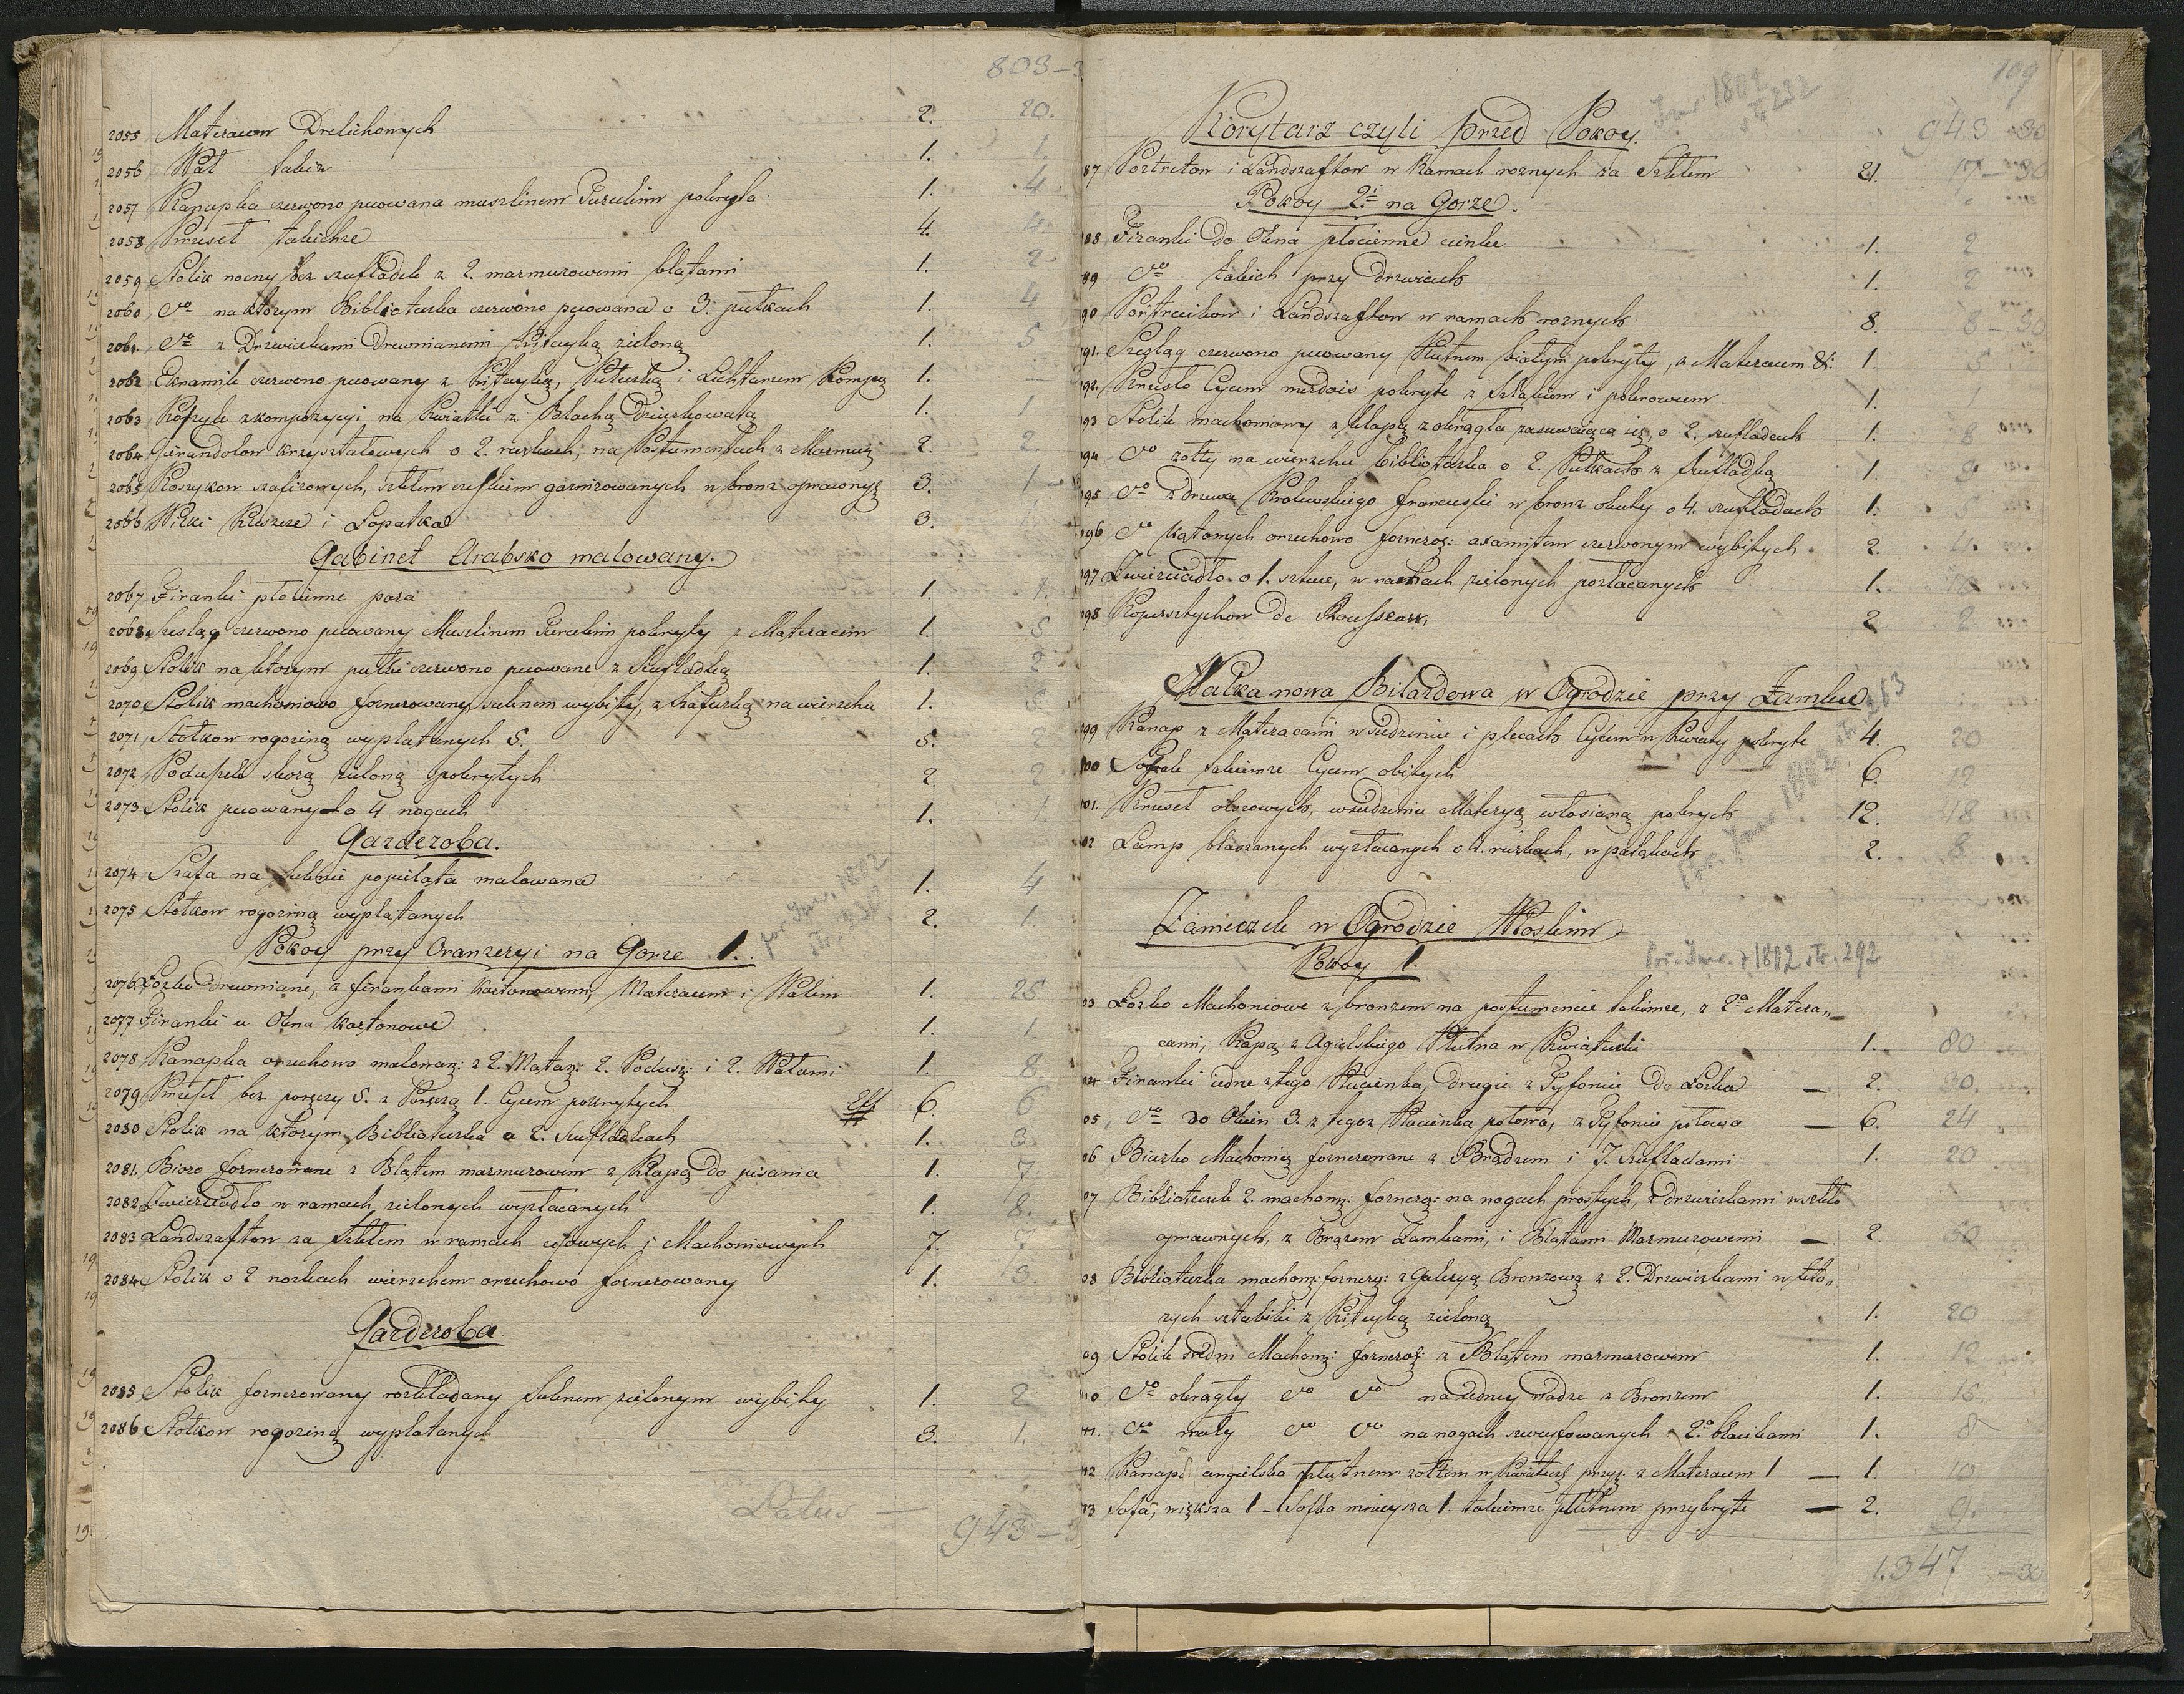 803–3
2055 Materacow Drelichowych 2. 20.
2056 Wał takiż 1. 1.
2057 Kanapka czerwono pucowana muszlinem Tureckim pokryta 1. 4.
2058 Krzeseł takichże 4. 4.
2059 Stolik nocny bez szufladek z 2. marmurowemi blatami 1. 2
2060 dto na ktorym Biblioteczka czerwono pucowana o 3. pułkach 1. 4
2061. dto z Drzwiczkami Drewnianemi Kitayką zieloną 1. 5
2062 Ekranik czerwono pucowany z Kitayką, Pułeczką i Lichtarzem 1.
2063 Koszyk z kompozycyi na Kwiatki z Blachą Dziurkowatą 1. 1
2064 Girandolow krzyształowych o 2. rurkach, na Postumentach z Marmuru 2. 2.
2065 Koszykow szafirowych, szkłem czeskiem garnirowanych w bronz oprawnych 3. 1
2066 Wilki Kleszcze i Łopatka 3.
Gabinet Arabsko malowany.
2067 Firanki płocienne para 1. 1.
2068 Szesląg czerwono pucowany Muszlinem Tureckim pokryty z Materacem 1. 5
2069 Stolik na ktorym pułki czerwono pucowane z Szufladką 1. 2
2070 Stolik machoniowo fornerowany suknem wybity, z Szafeczką na wierzchu 1. 5
2071 Stołkow rogoziną wyplatanych 5. 5. 2
2072 Poduszek skorą zieloną pokrytych 2. 2
2073 Stolik pucowany o 4 nogach 1. 1.
Garderoba.
2074 Szafa na suknie popielato malowana 1. 4
2075 Stołkow rogoziną wyplatanych 2. 1.
por. Inw. 1802
str. 230
Pokoy przy Oranzeryi na Gorze 1.
2076 Łozko drewniane, z firankami Kartonowemi, Materacem i Wałem 1. 25
2077 Firanki u Okna Kartonowe 1. 1.
2078 Kanapka orzechowo malowan: z 2. Matar: 2. Podusz: i 2. Wałami 1. 8.
2079 Krzeseł bez poręczy 5. z Poręczą 1. Cycem pokrytych 6. 6
2080 Stolik na ktorym Biblioteczka o 2. Szufladkach 1. 3.
2081. Biuro fornerowane z Blatem marmurowem z Klapą do pisania 1. 7
2082 Zwierciadło w ramach zielonych wyzłacanych 1. 8.
2083 Landszaftow za szkłem w ramach i Machoniowych 7. 7
2084 Stolik o 2 nozkach wierzchem orzechowo fornerowany 1. 3.
Garderoba
2085 Stolik fornerowany rozkładany Suknem zielonym wybity 1. 2
2086 Stołkow rogoziną wyplatanych 3. 1.
Latus —
943–3
109
Inw. 1802
str. 232
Korytarz czyli przed Pokoy. 943 30
87 Portretow i Landszaftow w Ramach roznych za Szkłem 21. 17–30
Pokoy 2.i na Gorze.
88 Firanki do Okna płocienne cienkie 1. 2
89 dto takich przy Drzwiach 1. 2
90 Portrecikow i Landszaftow w ramach roznych 8. 8–30
91. Szesląg czerwono pucowany Płutnem białym pokryty, z Materacem &: 1. 3
92. Krzesło Cycem merdois pokryte z i pokrowcem 1. 1
93 Stolik machoniowy z klapą z okrągła zasuwaiącą się, o 2. szufladach 1. 8
94 dto zołty na wierzchu biblioteczka o 2. Pułkach z Szufladką 1. 9
95 dto z drzewa Krolewskiego francuski w bronz okuty o 4. szufladach 1. 5
96 dto kątowych orzechowo fornerow: axamitem czerwonym wybitych 2. 4.
97 Zwierciadło o 1. sztuce, w ramach zielonych pozłacanych 1. 10
98 Kopersztychow de Rousseau, 2 2
Salka nowa Bilardowa w Ogrodzie przy Zamku
99 Kanap z Materacami w siedzeniu i plecach Cycem w Kwiaty pokryte 4. 20
100 Sofek takiemze Cycem obitych 6. 12
101. Krzeseł olszowych, w siedzeniu Materyą włosianą pokrytych 12. 48
02 Lamp blaszanych wyzłacanych o 4. rurkach, w pałąkach 2. 8
por. Inw. 1802 str. 263
Zameczek w Ogrodzie Włoskim
Por. Inw. z 1802 str. 292
Pokoy 1.
03 Łozko Machoniowe z bronzem na postumencie takimze, z 2a Matera„
cami, Kapą z Agielskiego Płutna w Kwiateczki 1. 80
04 Firanki iedne z tego Płucienka, drugie z Tyfonie do Łozka — 2. 30.
05 dto do Okien 3. z tegoz Płucienka połowa, z Tyfonie połowa — 6. 24
06 Biurko Machonią fornerowane z Brązem i 7. Szufladami 1. 20
07 Biblioteczek 2. machon: fornero: na nogach prostych, z drzwiczkami w szkło
oprawnych, z Brązem Zamkami, i Blatami Marmurowemi — 2. 50
08 Biblioteczka machon: fornero: z Galeryą Bronzową z 2. Drzwiczkami w kto„
rych sztabiki z Kitayką zieloną 1. 20
09 Stolik sredni Machon: fornerow: z Blatem marmurowem 1. 12
10 dto okrągły dto dto na iedney nodze z Bronzem 1. 15.
11. dto mały dto dto na nogach szweyfowanych z 2a blacikami 1. 8
12 Kanapa angielska płutnem zołtem w Kwiateczki przy: z Materacem 1 — 1 10
13 Sofa, większa 1 – Sofka mnieysza 1. takiemze płutnem przykryte — 2. 9.
1.347 –30